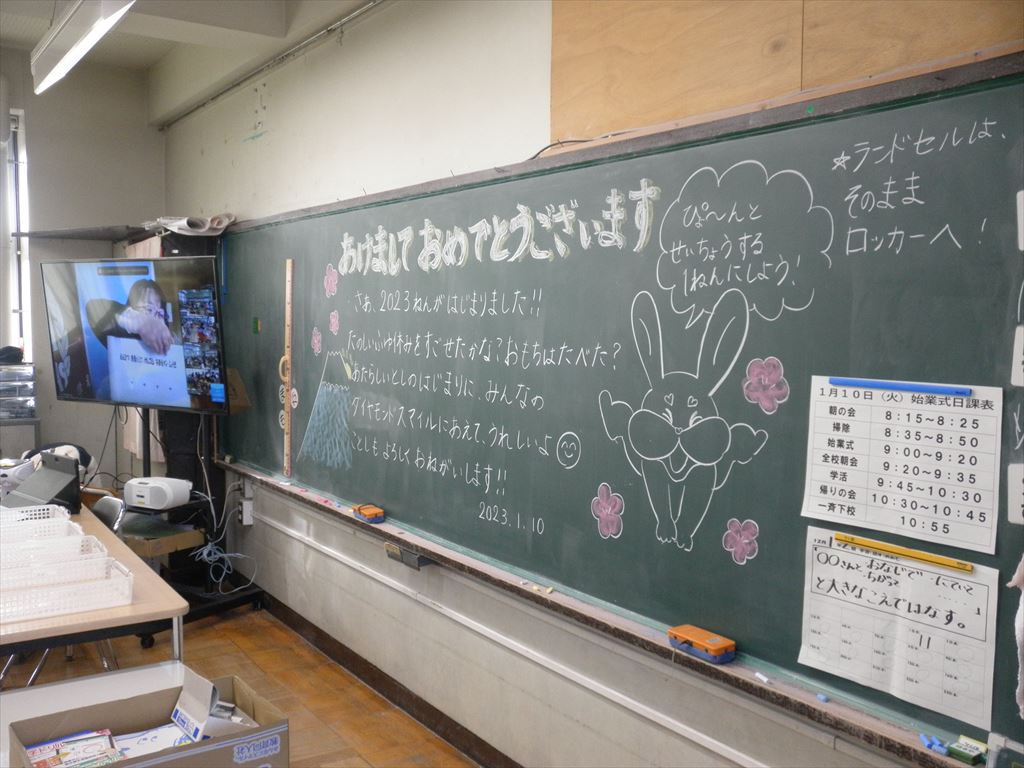 あけましておめでとうございます
さあ、2023ねんがはじまりました!!
たのしいふゆ休みをすごせたかな?おもちはたべた?
あたらしいとしのはじまりに、みんなの
ダイヤモンドスマイルにあえて、うれしいよ
ことしもよろしくおねがいします!!
2023.1.10
ぴ〜んと
せいちょうする
1ねんにしよう!
★ランドセルは、
そのまま
ロッカーへ!
1月10日(火)始業式日課表
朝の会 8:15~8:25
掃除 8:35~8:50
始業式 9:00~9:20
全校朝会 9:20~9:35
学活 9:45~10:30
帰りの会 10:30~10:45
一斉下校 10:55
12月
〇〇さんと おなじで
ちがって
と大きなこえではなす。
11
教育同人社